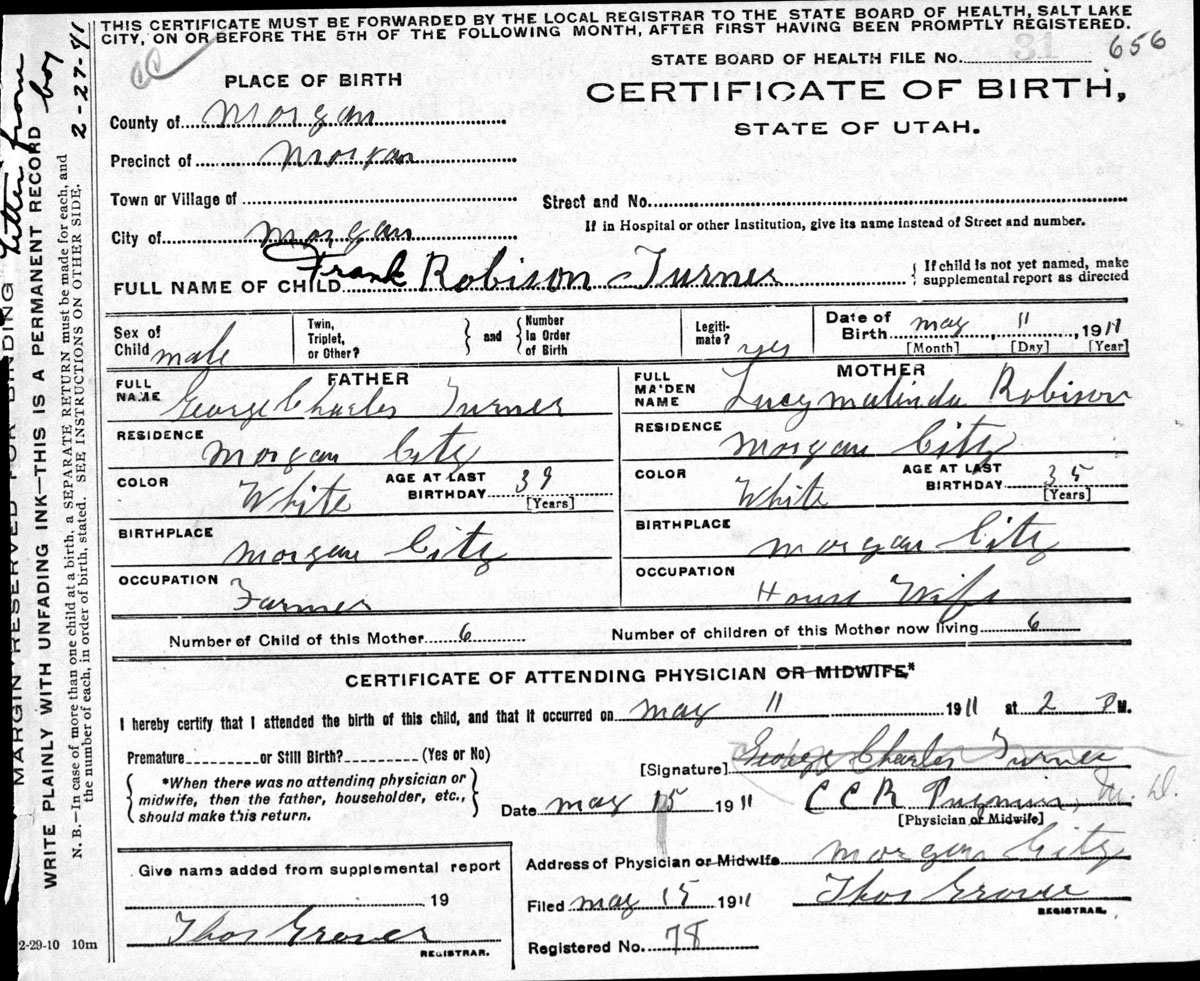 THIS CERTIFICATE MUST BE FORWARDED BY THE LOCAL REGISTRAR TO THE STATE BOARD OF HEALTH, SALT LAKE
CITY, ON OR BEFORE THE 5TH OF THE FOLLOWING MONTH, AFTER FIRST HAVING BEEN PROMPTLY REGISTERED.
656
STATE BOARD OF HEALTH FILE No.
CC
PLACE OF BIRTH
CERTIFICATE OF BIRTH,
STATE OF UTAH.
County of Morgan
Precinct of Morgan
Town or Village of
Street and No.
City of Morgan
If in Hospital or other Institution, give its name instead of Street and number.
FULL NAME OF CHILD Frank Robison Turner
{ If child is not yet named, make
supplemental report as directed
Sex of Child male
Twin, Triplet, or Other? } and { Number in Order of Birth
Legiti-mate? yes
Date of Birth May 11, 1911
[Month] [Day] [Year]
FATHER
MOTHER
FULL NAME George Charles Turner
FULL MAIDEN NAME Lucy Malinda Robison
RESIDENCE Morgan City
RESIDENCE Morgan City
COLOR White AGE AT LAST BIRTHDAY 39 [Years]
COLOR White AGE AT LAST BIRTHDAY 35 [Years]
BIRTHPLACE Morgan City
BIRTHPLACE Morgan City
OCCUPATION Farmer
OCCUPATION House Wife
Number of Child of this Mother 6 Number of children of this Mother now living 6
CERTIFICATE OF ATTENDING PHYSICIAN OR MIDWIFE*
I hereby certify that I attended the birth of this child, and that it occurred on May 11 1911 at 2 P M.
Premature or Still Birth? (Yes or No)
{ *When there was no attending physician or
midwife, then the father, householder, etc.,
should make this return. }
[Signature] George Charles Turner
Date May 15 1911 C C R M. D.
[Physician or Midwife]
Address of Physician or Midwife Morgan City
Filed May 15 1911 Thos Grover
REGISTRAR.
Registered No. 78
Give name added from supplemental report
19
Thos Grover
REGISTRAR.
2-29-10 10m
MARGIN RESERVED FOR BINDING
Letter from boy 2-27-41
WRITE PLAINLY WITH UNFADING INK—THIS IS A PERMANENT RECORD
N. B.—In case of more than one child at a birth, a SEPARATE RETURN must be made for each, and
the number of each, in order of birth, stated. SEE INSTRUCTIONS ON OTHER SIDE.